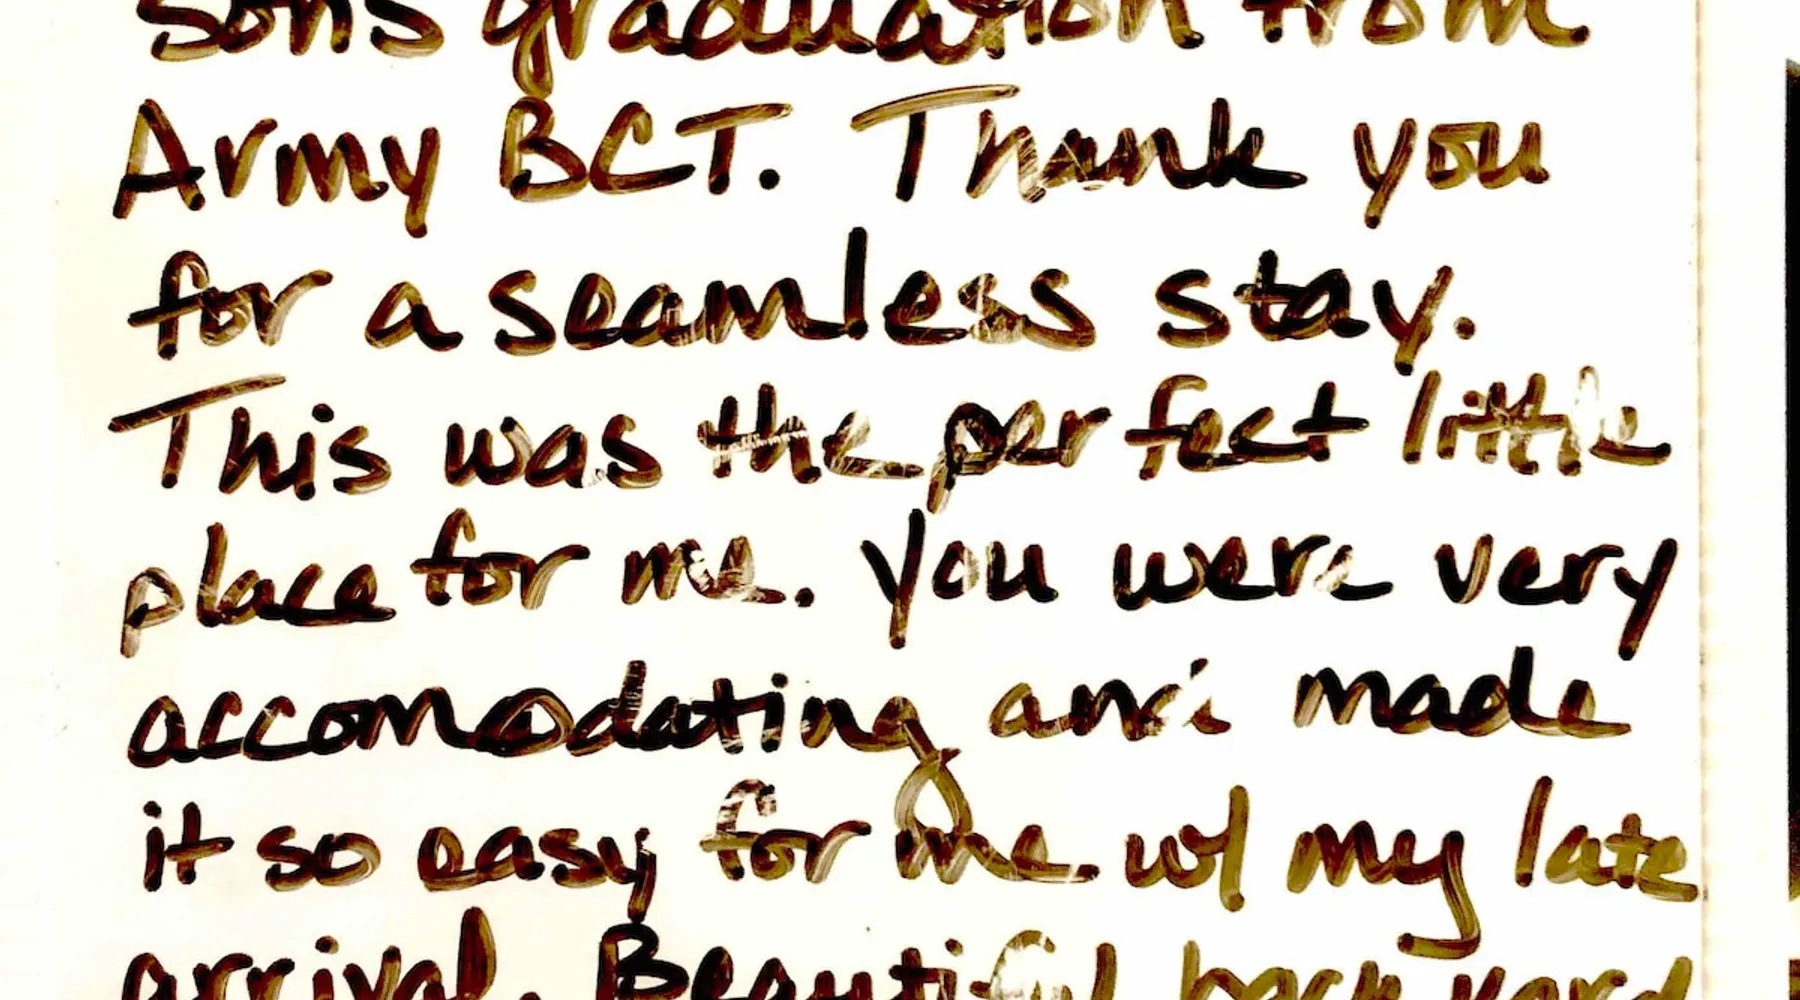 sons graduation from
Army BCT. Thank you
for a seamless stay.
This was the perfect little
place for me. You were very
accomodating and made
it so easy for me w/ my late
arrival. Beautiful back yard